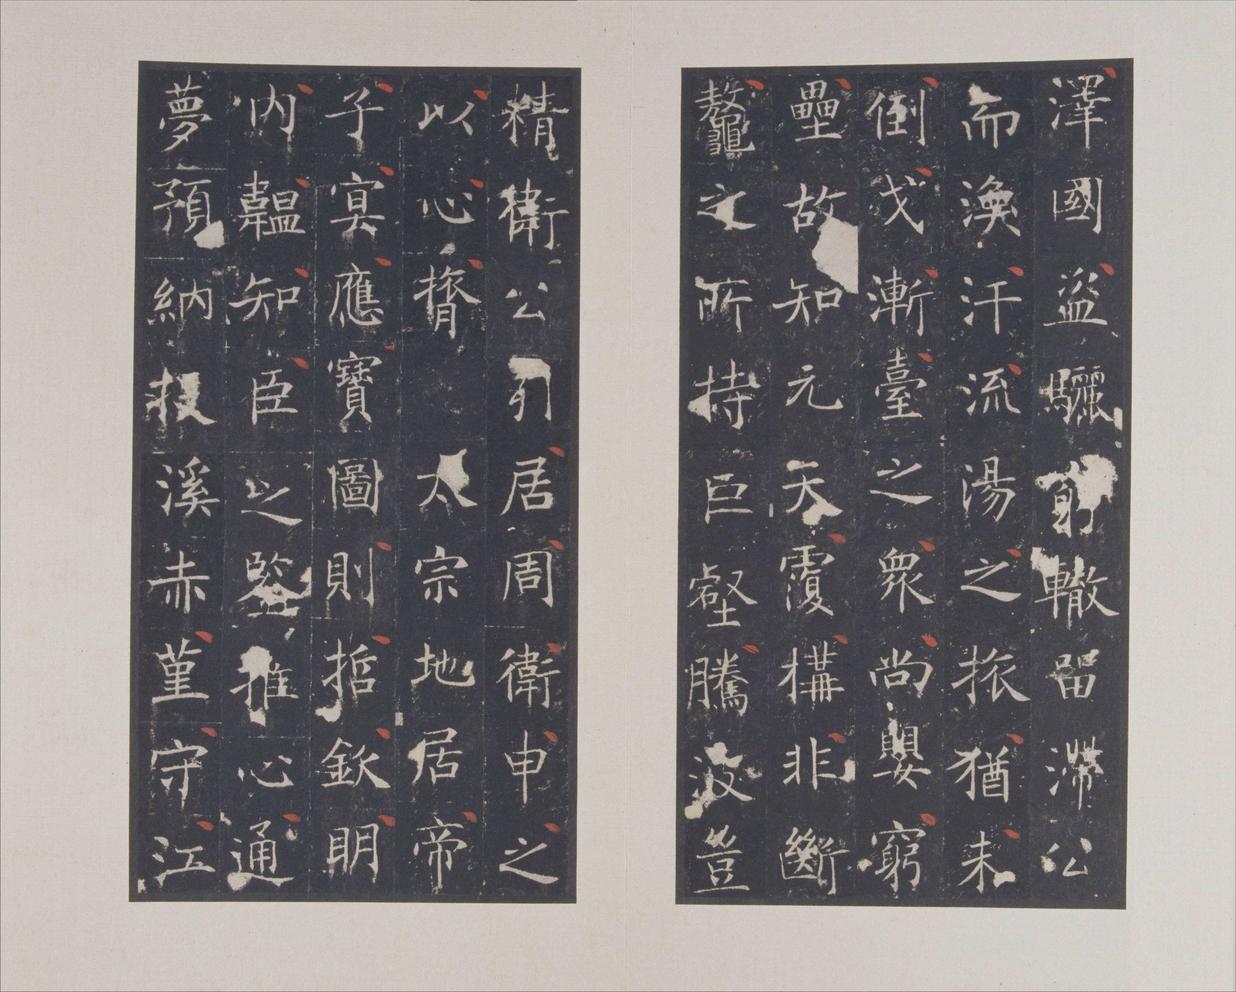 澤國盜驪躬轍留滯公
而渙汗流湯之振猶未
倒戈漸臺之眾尚嬰窮
壘故知元天覆構非斷
鼇之所持巨壑騰波豈
精衛公引居周衛申之
以心膂太宗地居帝
子寘應寶圖則哲欽明
內韞知臣之鑒推心通
夢預納投溪赤堇守江